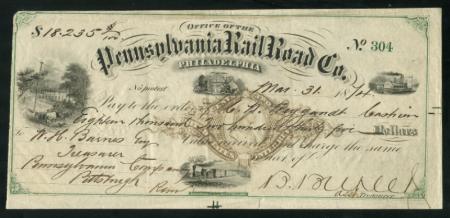 $18.235 $/100
OFFICE OF THE
Pennsylvania Rail Road Co.
No 304
PHILADELPHIA
No protest
Mar. 31. 187
Pay to the order of Cashier
Eighteen thousand two hundred thirty five Dollars
Value received and charge the same
to W. H. Barnes Esq
Treasurer
Pennsylvania Company
Pittsburgh
Penn